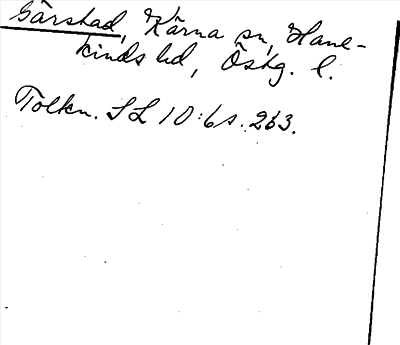 Gärstad, Kärna sn, Hane-
kinds hd, Östg. l.
Tolkn. SL 10:6 s. 263.